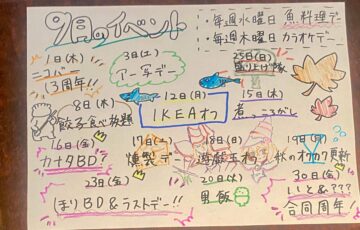 9月のイベント
・毎週水曜日 魚料理デー
・毎週木曜日 カラオケデー
1日(木)
ニコバー
13周年!!
3日(土)
アー写デー
25日(日)
盛り上げ隊
8日(木)
餃子食べ放題
12日(月)
IKEAオフ
15日(木)
煮っころがし
16日(金)
カナタBD?
17日(土)
燻製デー
18日(日)
遊戯王オフ
19日(月)
秋のオカワ更新
23日(金)
ほりBD&ラストデー!!
20日(火)
男飯
30日(金)
いと&???
合同周年!!